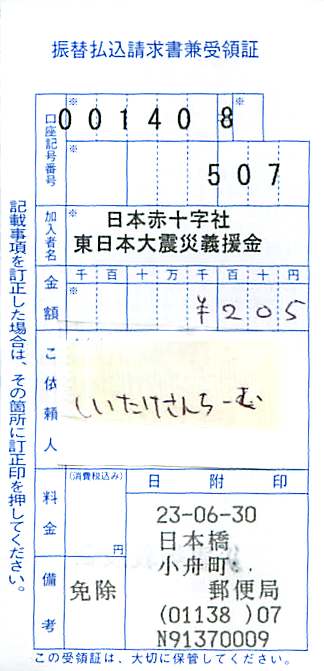 振替払込請求書兼受領証
口座記号番号
※
00140 8
※
507
加入者名
※
日本赤十字社
東日本大震災義援金
金額
千 百 十 万 千 百 十 円
※
¥205
ご依頼人
しいたけさんちーむ
料金
(消費税込み)
円
備考
免除
日 附 印
23-06-30
日本橋
小舟町
郵便局
(01138 )07
N91370009
記載事項を訂正した場合は、その箇所に訂正印を押してください。
この受領証は、大切に保管してください。